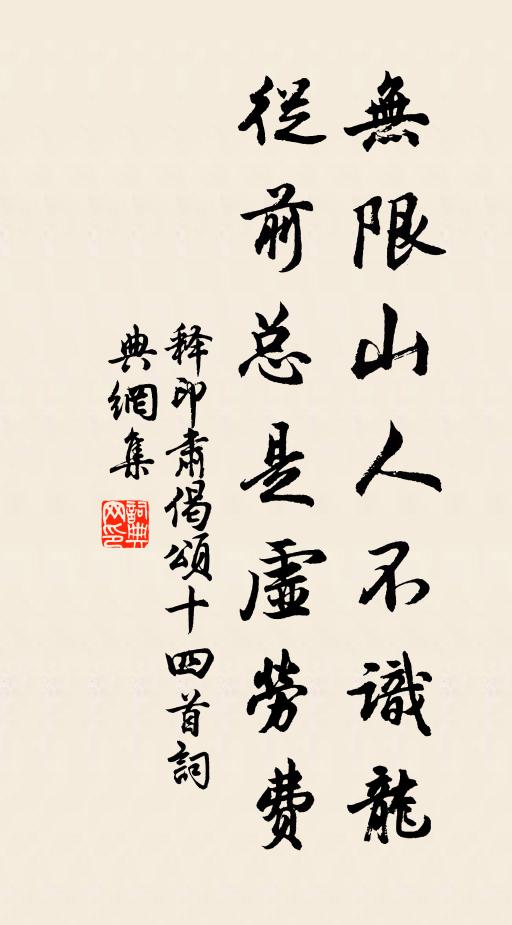 無限山人不識龍
從前总是虛勞費
释印肅偈頌十四首詞
典網集
詞典
网印